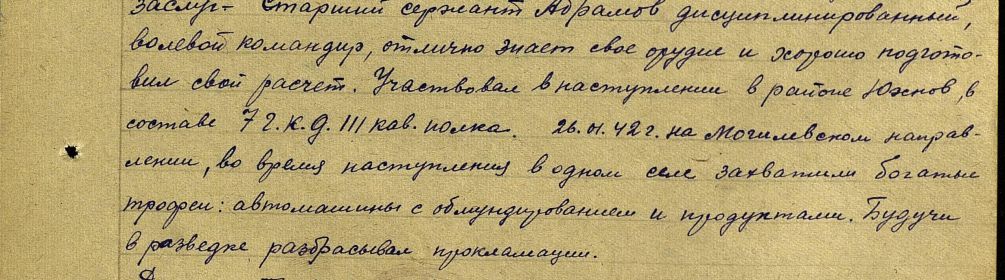 заслуг - Старший сержант Абрамов дисциплинированный,
волевой командир, отлично знает свое орудие и хорошо подгото-
вил свой расчет. Участвовал в наступлении в районе Юхнов, в
составе 7 Г.К.Д. III кав. полка. 26.01.42 г. на Могилевском направ-
лении, во время наступления в одном селе захватили богатые
трофеи: автомашины с обмундированием и продуктами. Будучи
в разведке разбрасывал прокламации.